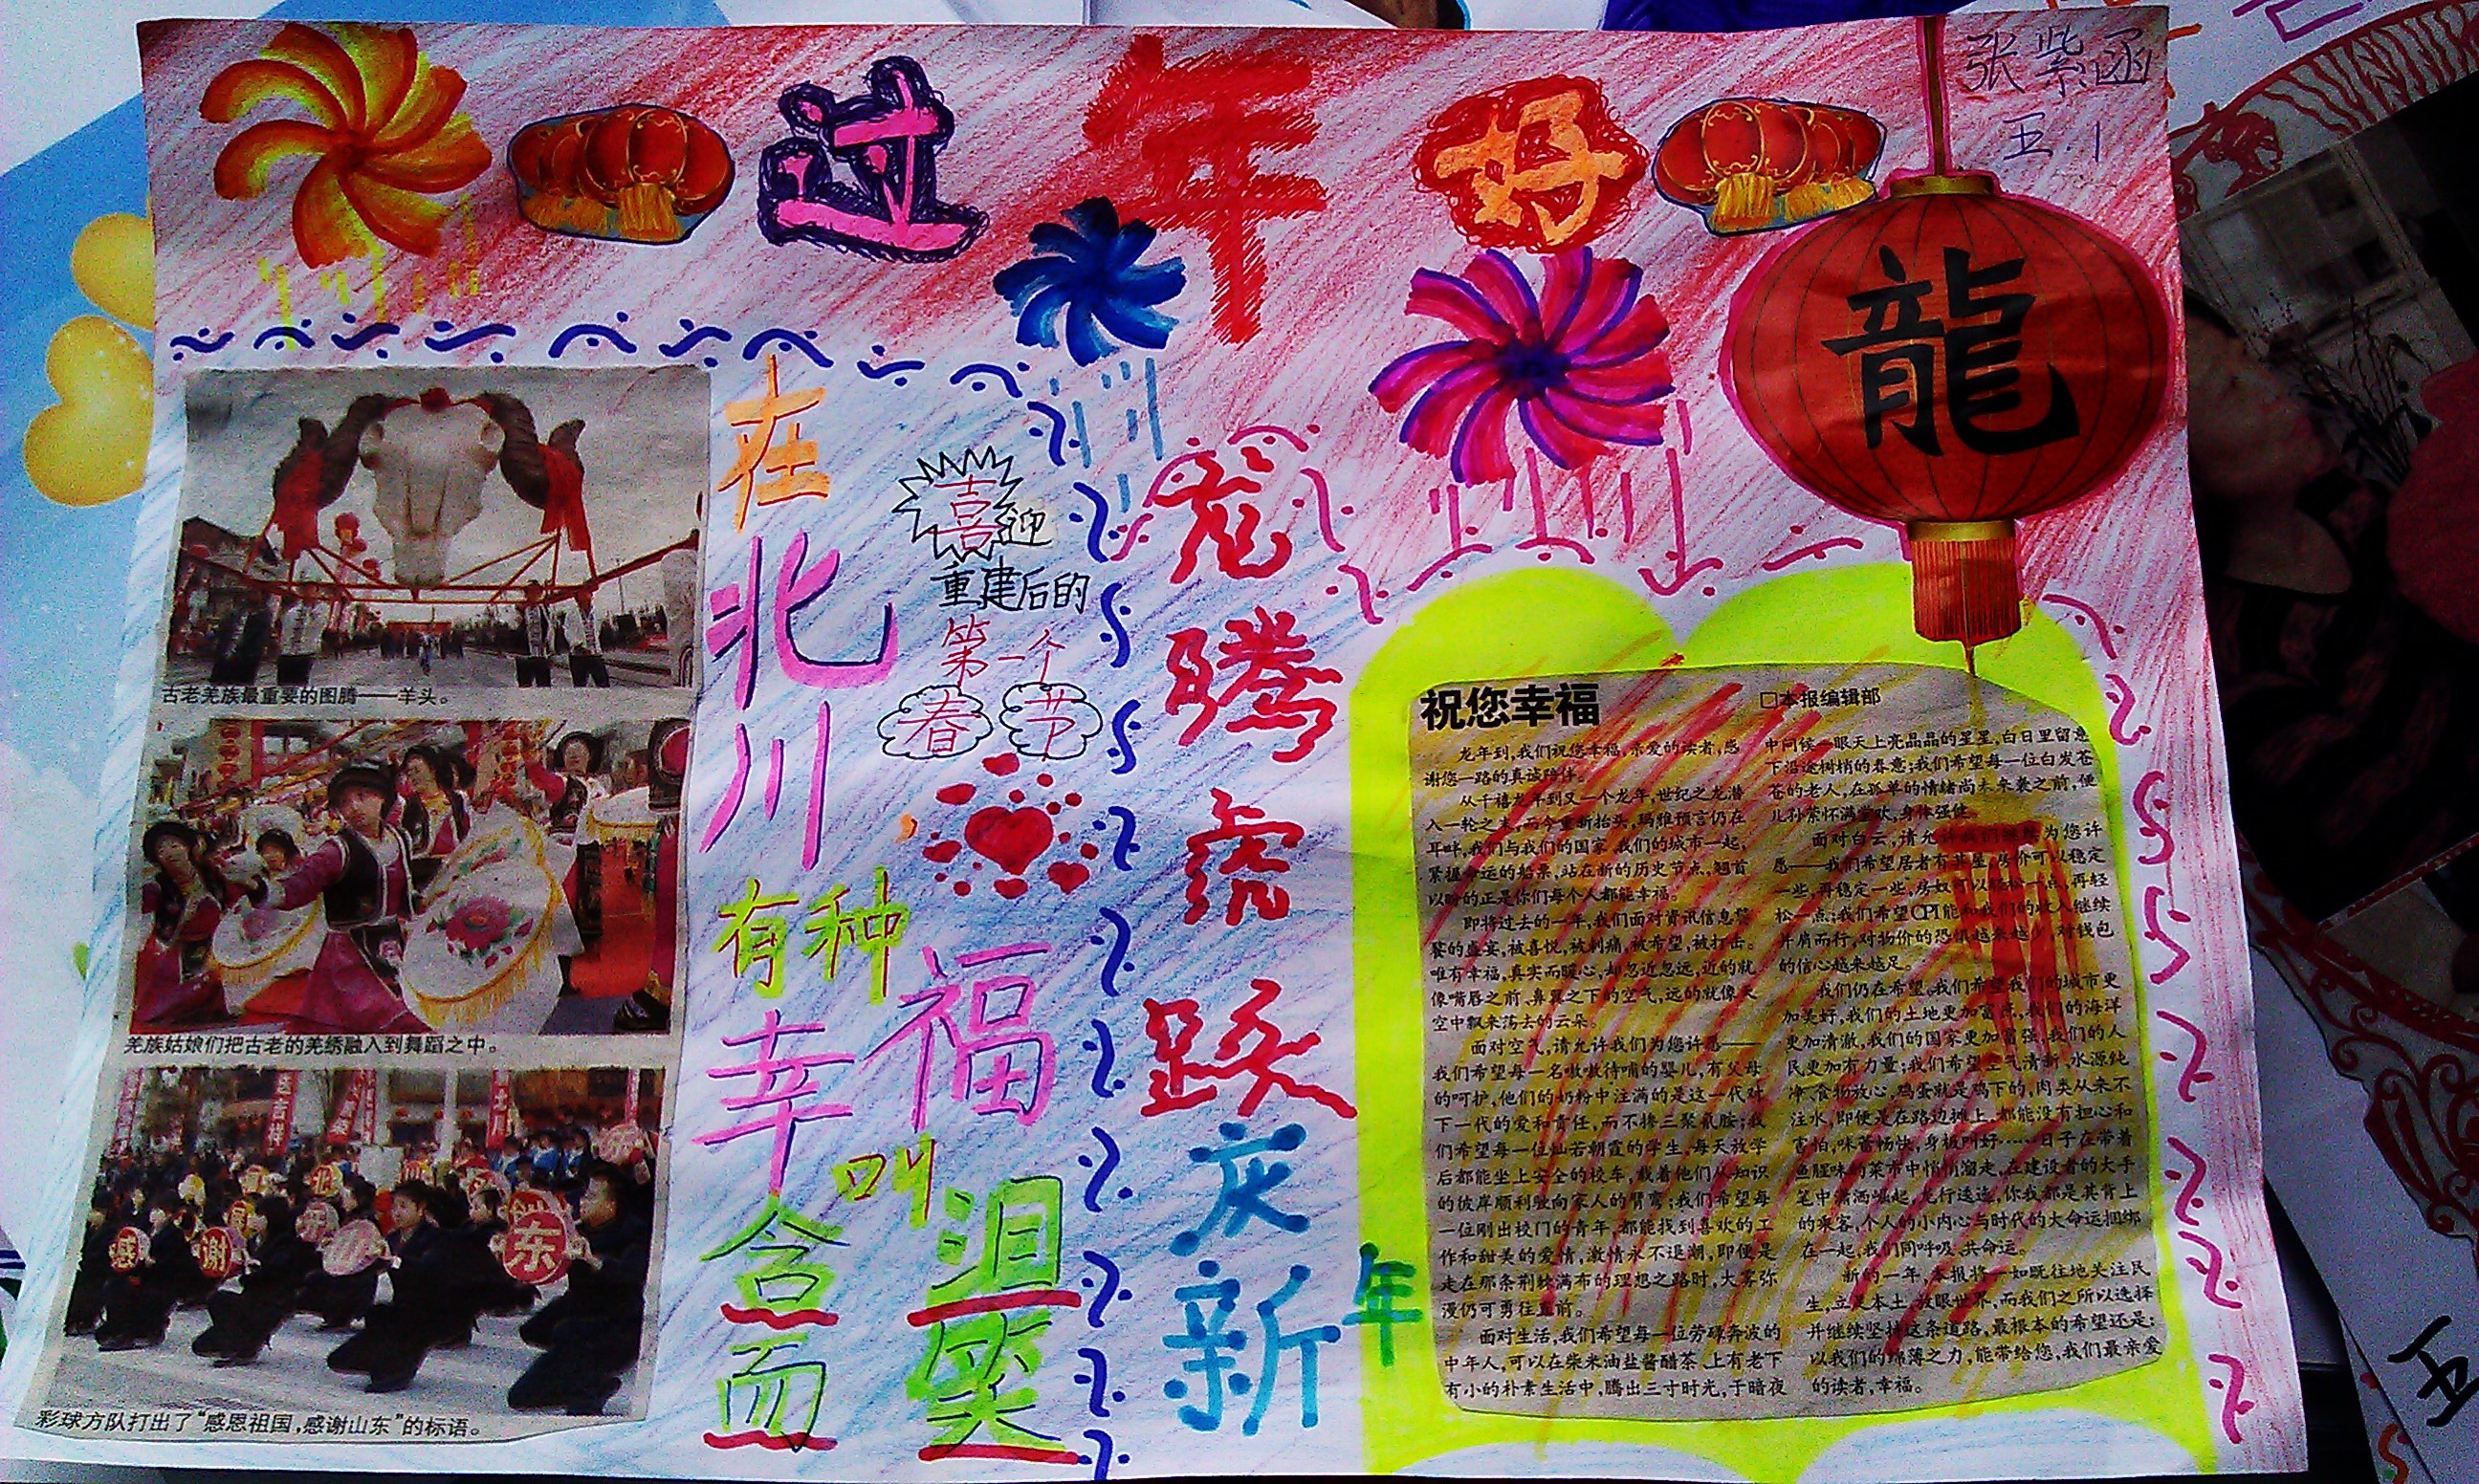 张紫函
五.1
过年好
龍
在北川有种幸福叫含泪而笑
喜迎
重建后的
第一个
春节
龙腾虎跃庆新年
古老羌族最重要的图腾——羊头。
羌族姑娘们把古老的羌绣融入到舞蹈之中。
感
谢
东
彩球方队打出了“感恩祖国,感谢山东”的标语。
祝您幸福
□本报编辑部
龙年到,我们祝您幸福,亲爱的读者,感
谢您一路的真诚陪伴。
从千禧龙年到又一个龙年,世纪之龙潜
入一轮之末,而今重新抬头,玛雅预言仍在
耳畔,我们与我们的国家、我们的城市一起,
紧握命运的船票,站在新的历史节点,翘首
以盼的正是你们每个人都能幸福。
即将过去的一年,我们面对资讯信息饕
餮的盛宴,被喜悦,被刺痛,被希望,被打击。
唯有幸福,真实而暖心,却忽近忽远,近的就
像嘴唇之前、鼻翼之下的空气,远的就像天
空中飘来荡去的云朵。
面对空气,请允许我们为您许愿——
我们希望每一名嗷嗷待哺的婴儿,有父母
的呵护,他们的奶粉中注满的是这一代对
下一代的爱和责任,而不掺三聚氰胺;我
们希望每一位灿若朝霞的学生,每天放学
后都能坐上安全的校车,载着他们从知识
的彼岸顺利驶向家人的臂弯;我们希望每
一位刚出校门的青年,都能找到喜欢的工
作和甜美的爱情,激情永不退潮,即便是
走在那条荆棘满布的理想之路时,大雾弥
漫仍可勇往直前。
面对生活,我们希望每一位劳碌奔波的
中年人,可以在柴米油盐酱醋茶、上有老下
有小的朴素生活中,腾出三寸时光,于暗夜
中问候一眼天上亮晶晶的星星,白日里留意
下沿途树梢的春意;我们希望每一位白发苍
苍的老人,在孤单的情绪尚未来袭之前,便
儿孙萦怀满堂欢,身体强健。
面对白云,请允许我们继续为您许
愿——我们希望居者有其屋,房价可以稳定
一些,再稳定一些,房奴可以轻松一点,再轻
松一点;我们希望CPI能和我们的收入继续
并肩而行,对物价的恐惧越来越少,对钱包
的信心越来越足。
我们仍在希望。我们希望我们的城市更
加美好,我们的土地更加富庶,我们的海洋
更加清澈,我们的国家更加富强,我们的人
民更加有力量;我们希望空气清新、水源纯
净、食物放心,鸡蛋就是鸡下的,肉类从来不
注水,即便是在路边摊上,都能没有担心和
害怕,味蕾畅快,身板叫好……日子在带着
鱼腥味的菜市中悄悄溜走,在建设者的大手
笔中潇洒崛起,龙行迭迭,你我都是其背上
的乘客,个人的小内心与时代的大命运捆绑
在一起,我们同呼吸、共命运。
新的一年,本报将一如既往地关注民
生,立足本土,放眼世界,而我们之所以选择
并继续坚持这条道路,最根本的希望还是:
以我们的绵薄之力,能带给您,我们最亲爱
的读者,幸福。
五